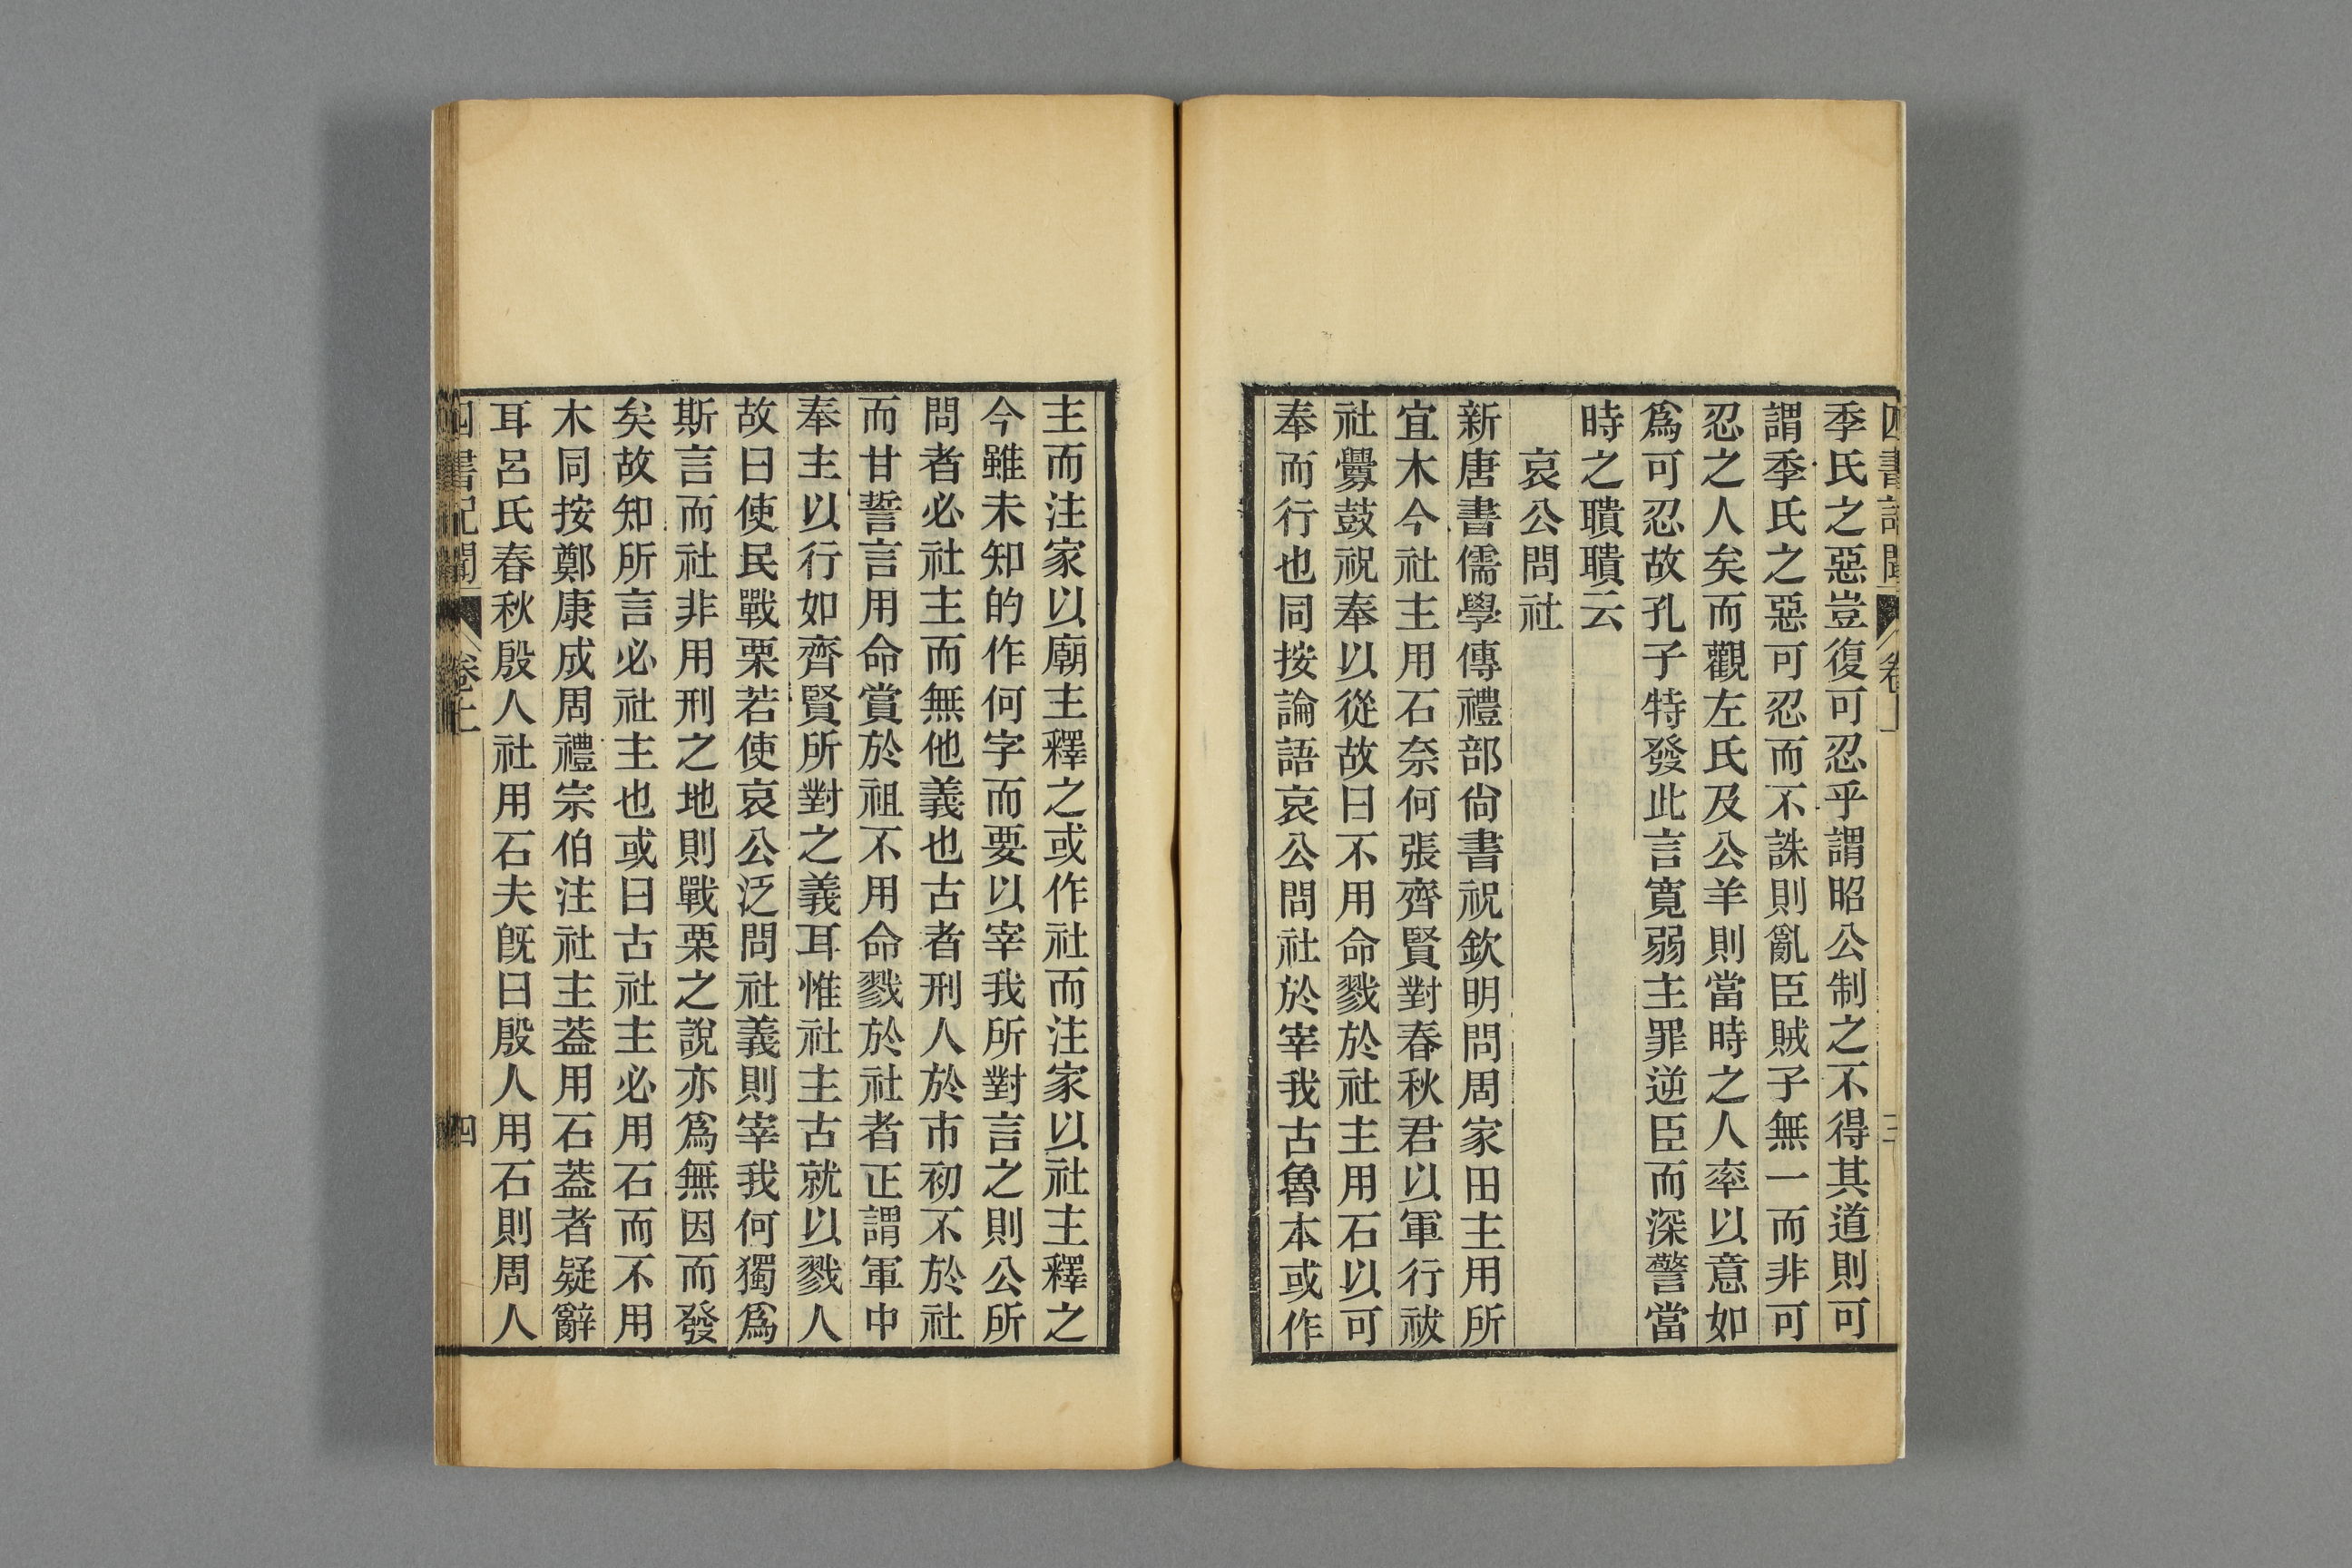 季氏之惡豈復可忍乎謂昭公制之不得其道則可
謂季氏之惡可忍而不誅則亂臣賊子無一而非可
忍之人矣而觀左氏及公羊則當時之人率以意如
爲可忍故孔子特發此言寬弱主罪逆臣而深警當
時之聵聵云
哀公問社
新唐書儒學傳禮部尙書祝欽明問周家田主用所
宜木今社主用石奈何張齊賢對春秋君以軍行祓
社釁鼓祝奉以從故曰不用命戮於社主用石以可
奉而行也同按論語哀公問社於宰我古魯本或作
主而注家以廟主釋之或作社而注家以社主釋之
今雖未知的作何字而要以宰我所對言之則公所
問者必社主而無他義也古者刑人於市初不於社
而甘誓言用命賞於祖不用命戮於社者正謂軍中
奉主以行如齊賢所對之義耳惟社主古就以戮人
故曰使民戰栗若使哀公泛問社義則宰我何獨爲
斯言而社非用刑之地則戰栗之說亦爲無因而發
矣故知所言必社主也或曰古社主必用石而不用
木同按鄭康成周禮宗伯注社主葢用石葢者疑辭
耳呂氏春秋殷人社用石夫旣曰殷人用石則周人
四書記聞 卷上 四